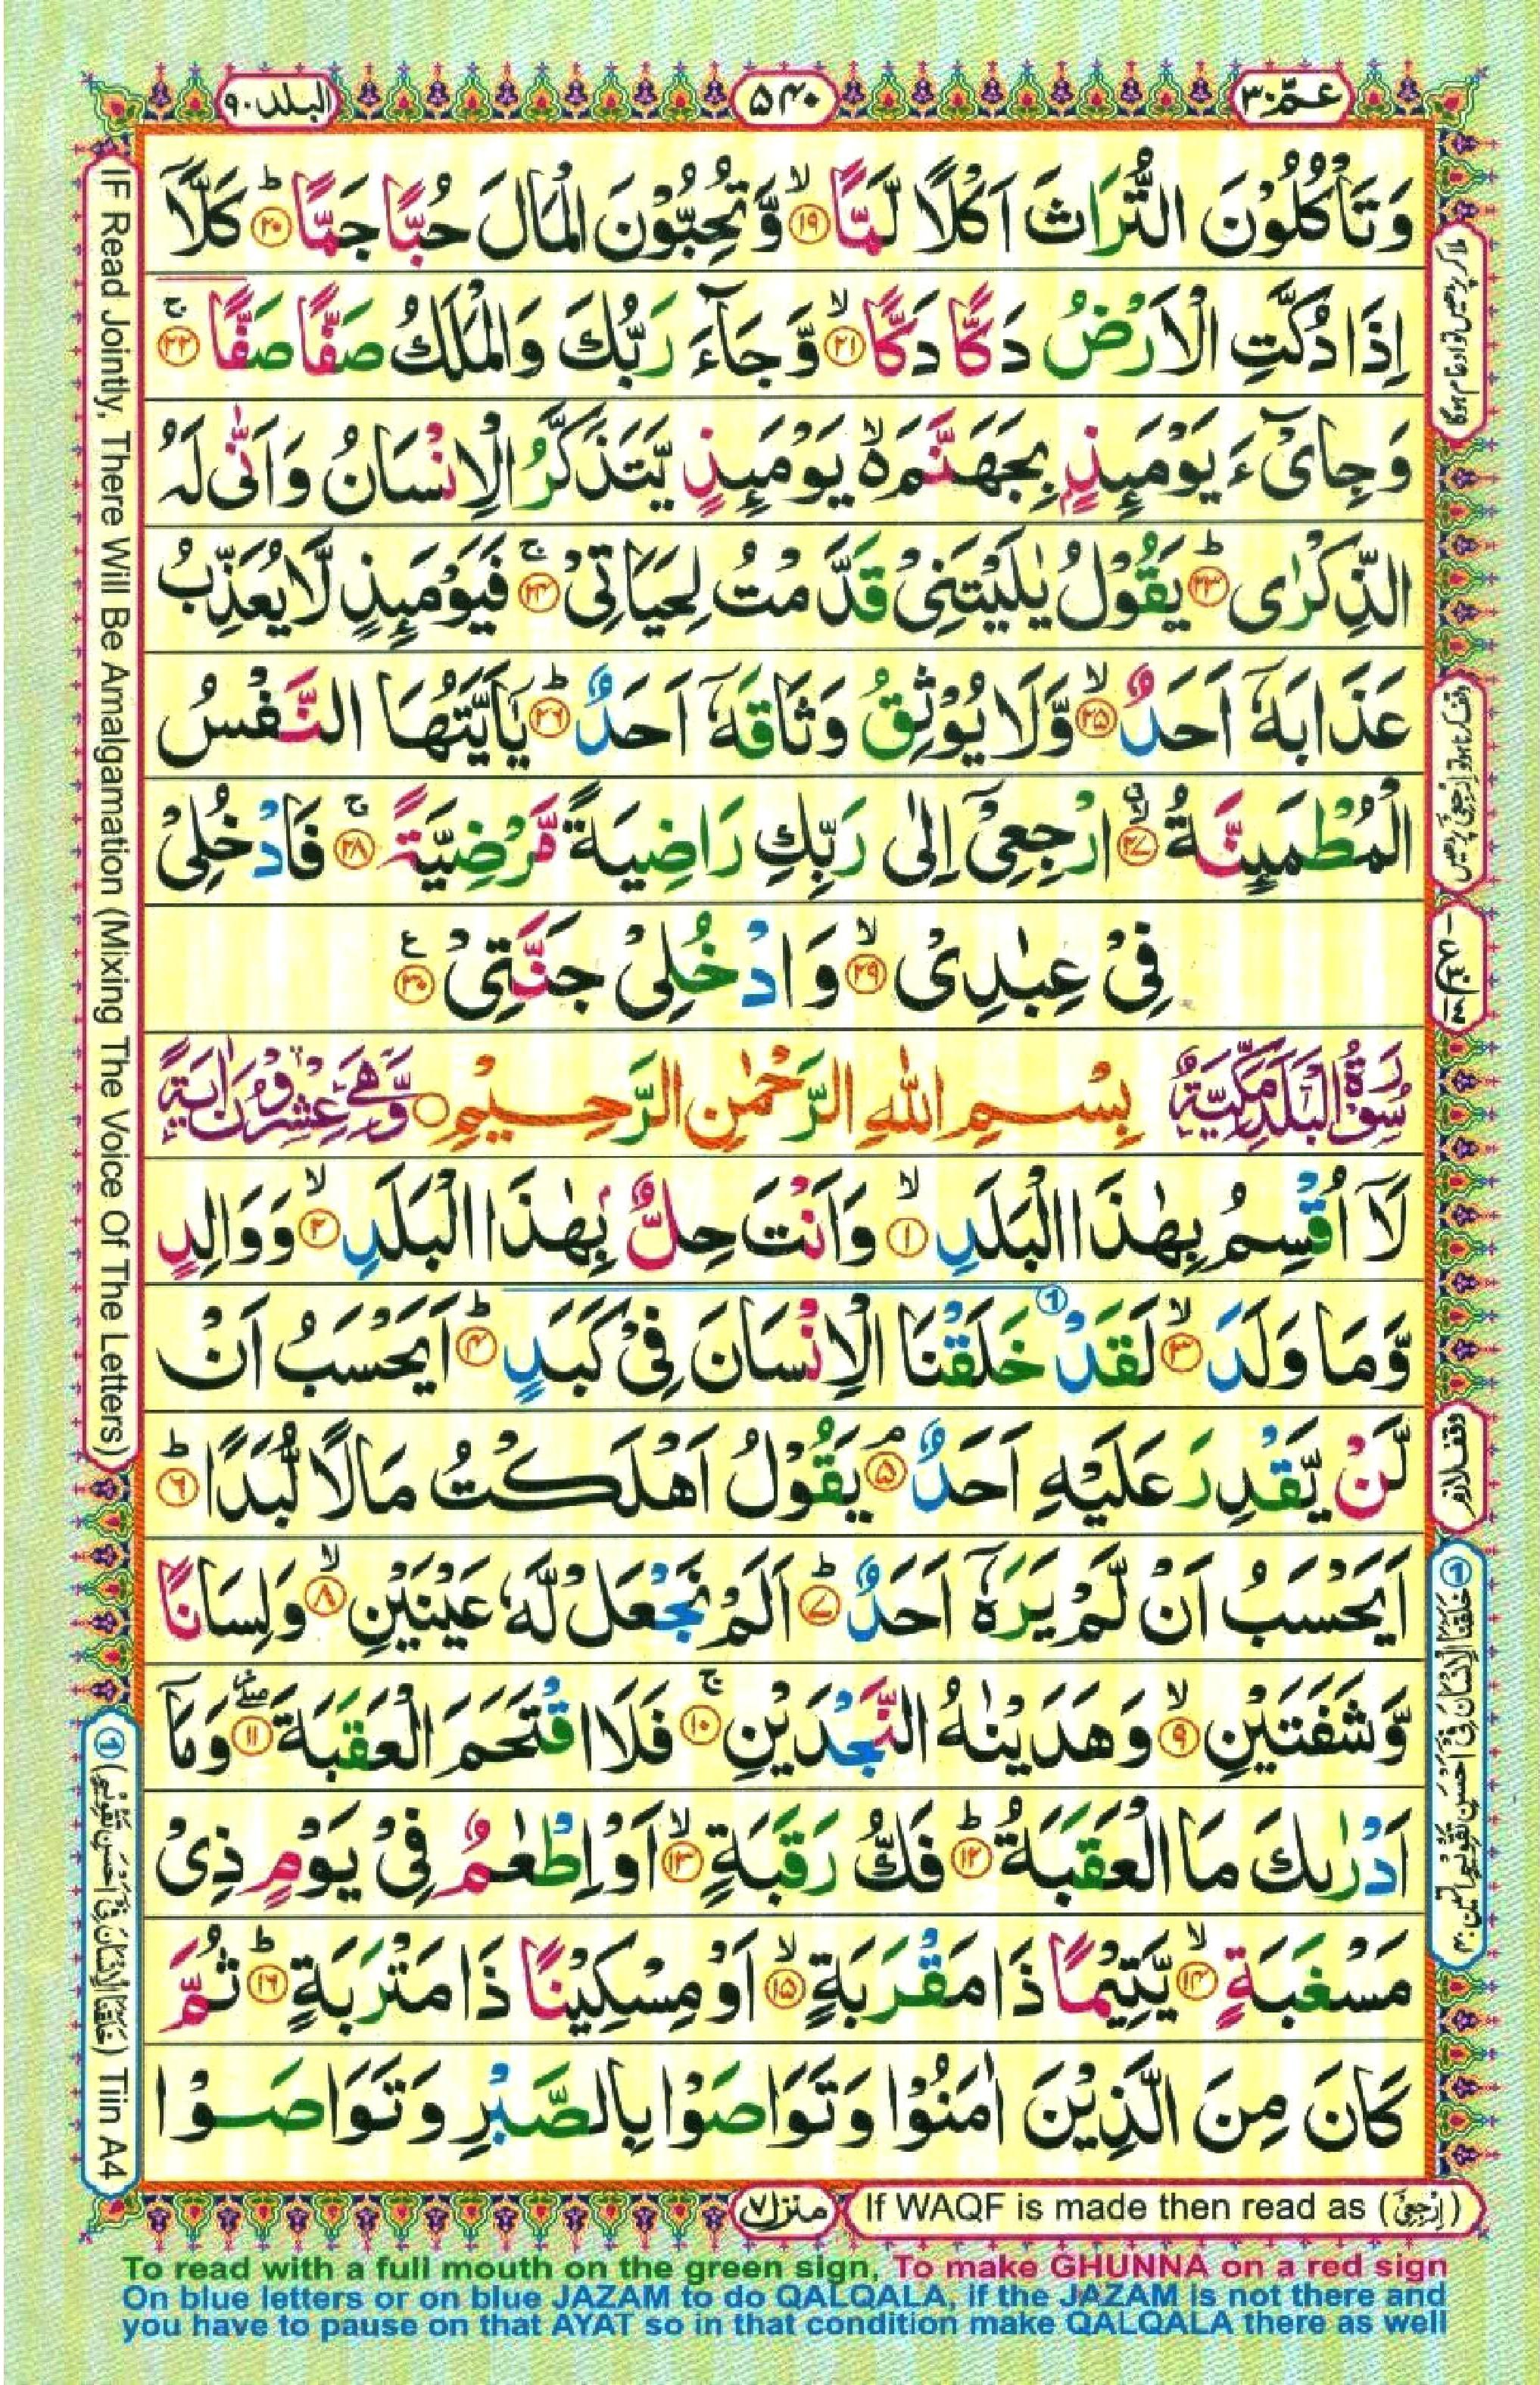 عمّ ۳۰
۵۴۰
البلد ۹۰
وَتَاْكُلُوْنَ التُّرَاثَ اَكْلًا لَّمًّا ۙ﴿۱۹﴾ وَّتُحِبُّوْنَ الْمَالَ حُبًّا جَمًّا ؕ﴿۲۰﴾ كَلَّاۤ
اِذَا دُكَّتِ الْاَرْضُ دَكًّا دَكًّا ۙ﴿۲۱﴾ وَّجَآءَ رَبُّكَ وَالْمَلَكُ صَفًّا صَفًّا ۚ﴿۲۲﴾
وَجِایْٓءَ يَوْمَىِٕذٍۭ بِجَهَنَّمَ ۙ۬ يَوْمَىِٕذٍ يَّتَذَكَّرُ الْاِنْسَانُ وَاَنّٰى لَهُ
الذِّكْرٰى ؕ﴿۲۳﴾ يَقُوْلُ يٰلَيْتَنِىْ قَدَّمْتُ لِحَيَاتِىْ ۚ﴿۲۴﴾ فَيَوْمَىِٕذٍ لَّا يُعَذِّبُ
عَذَابَهٗۤ اَحَدٌ ۙ﴿۲۵﴾ وَّلَا يُوْثِقُ وَثَاقَهٗۤ اَحَدٌ ؕ﴿۲۶﴾ يٰۤاَيَّتُهَا النَّفْسُ
الْمُطْمَىِٕنَّةُ ۙ﴿۲۷﴾ ارْجِعِىْۤ اِلٰى رَبِّكِ رَاضِيَةً مَّرْضِيَّةً ۚ﴿۲۸﴾ فَادْخُلِىْ
فِىْ عِبٰدِىْ ۙ﴿۲۹﴾ وَادْخُلِىْ جَنَّتِىْ ﴿۳۰﴾ ع
سُوْرَةُ الْبَلَدِ مَكِّيَّةٌ بِسْمِ اللهِ الرَّحْمٰنِ الرَّحِيْمِ ○ وَّهِىَ عِشْرُوْنَ اٰيَةً
لَاۤ اُقْسِمُ بِهٰذَا الْبَلَدِ ۙ﴿۱﴾ وَاَنْتَ حِلٌّۢ بِهٰذَا الْبَلَدِ ۙ﴿۲﴾ وَوَالِدٍ
وَّمَا وَلَدَ ۙ﴿۳﴾ لَقَدْ خَلَقْنَا الْاِنْسَانَ فِىْ كَبَدٍ ؕ﴿۴﴾ اَيَحْسَبُ اَنْ
لَّنْ يَّقْدِرَ عَلَيْهِ اَحَدٌ ۘ﴿۵﴾ يَقُوْلُ اَهْلَكْتُ مَالًا لُّبَدًا ؕ﴿۶﴾
اَيَحْسَبُ اَنْ لَّمْ يَرَهٗۤ اَحَدٌ ؕ﴿۷﴾ اَلَمْ نَجْعَلْ لَّهٗ عَيْنَيْنِ ۙ﴿۸﴾ وَلِسَانًا
وَّشَفَتَيْنِ ۙ﴿۹﴾ وَهَدَيْنٰهُ النَّجْدَيْنِ ۚ﴿۱۰﴾ فَلَا اقْتَحَمَ الْعَقَبَةَ ۖ﴿۱۱﴾ وَمَاۤ
اَدْرٰىكَ مَا الْعَقَبَةُ ؕ﴿۱۲﴾ فَكُّ رَقَبَةٍ ۙ﴿۱۳﴾ اَوْ اِطْعٰمٌ فِىْ يَوْمٍ ذِىْ
مَسْغَبَةٍ ۙ﴿۱۴﴾ يَّتِيْمًا ذَا مَقْرَبَةٍ ۙ﴿۱۵﴾ اَوْ مِسْكِيْنًا ذَا مَتْرَبَةٍ ؕ﴿۱۶﴾ ثُمَّ
كَانَ مِنَ الَّذِيْنَ اٰمَنُوْا وَتَوَاصَوْا بِالصَّبْرِ وَتَوَاصَوْا
ملا کر پڑھیں تو ادغام ہوگا
وقف لازم
① خَلَقْنَا الْاِنْسَانَ فِىْۤ اَحْسَنِ تَقْوِيْمٍ التین:۴
IF Read Jointly, There Will Be Amalgamation (Mixing The Voice Of The Letters)
① (خَلَقْنَا الْاِنْسَانَ فِىْۤ اَحْسَنِ تَقْوِيْمٍ) Tiin A4
منزل ۷
If WAQF is made then read as (اِرْجِعِىْ)
To read with a full mouth on the green sign, To make GHUNNA on a red sign
On blue letters or on blue JAZAM to do QALQALA, if the JAZAM is not there and
you have to pause on that AYAT so in that condition make QALQALA there as well